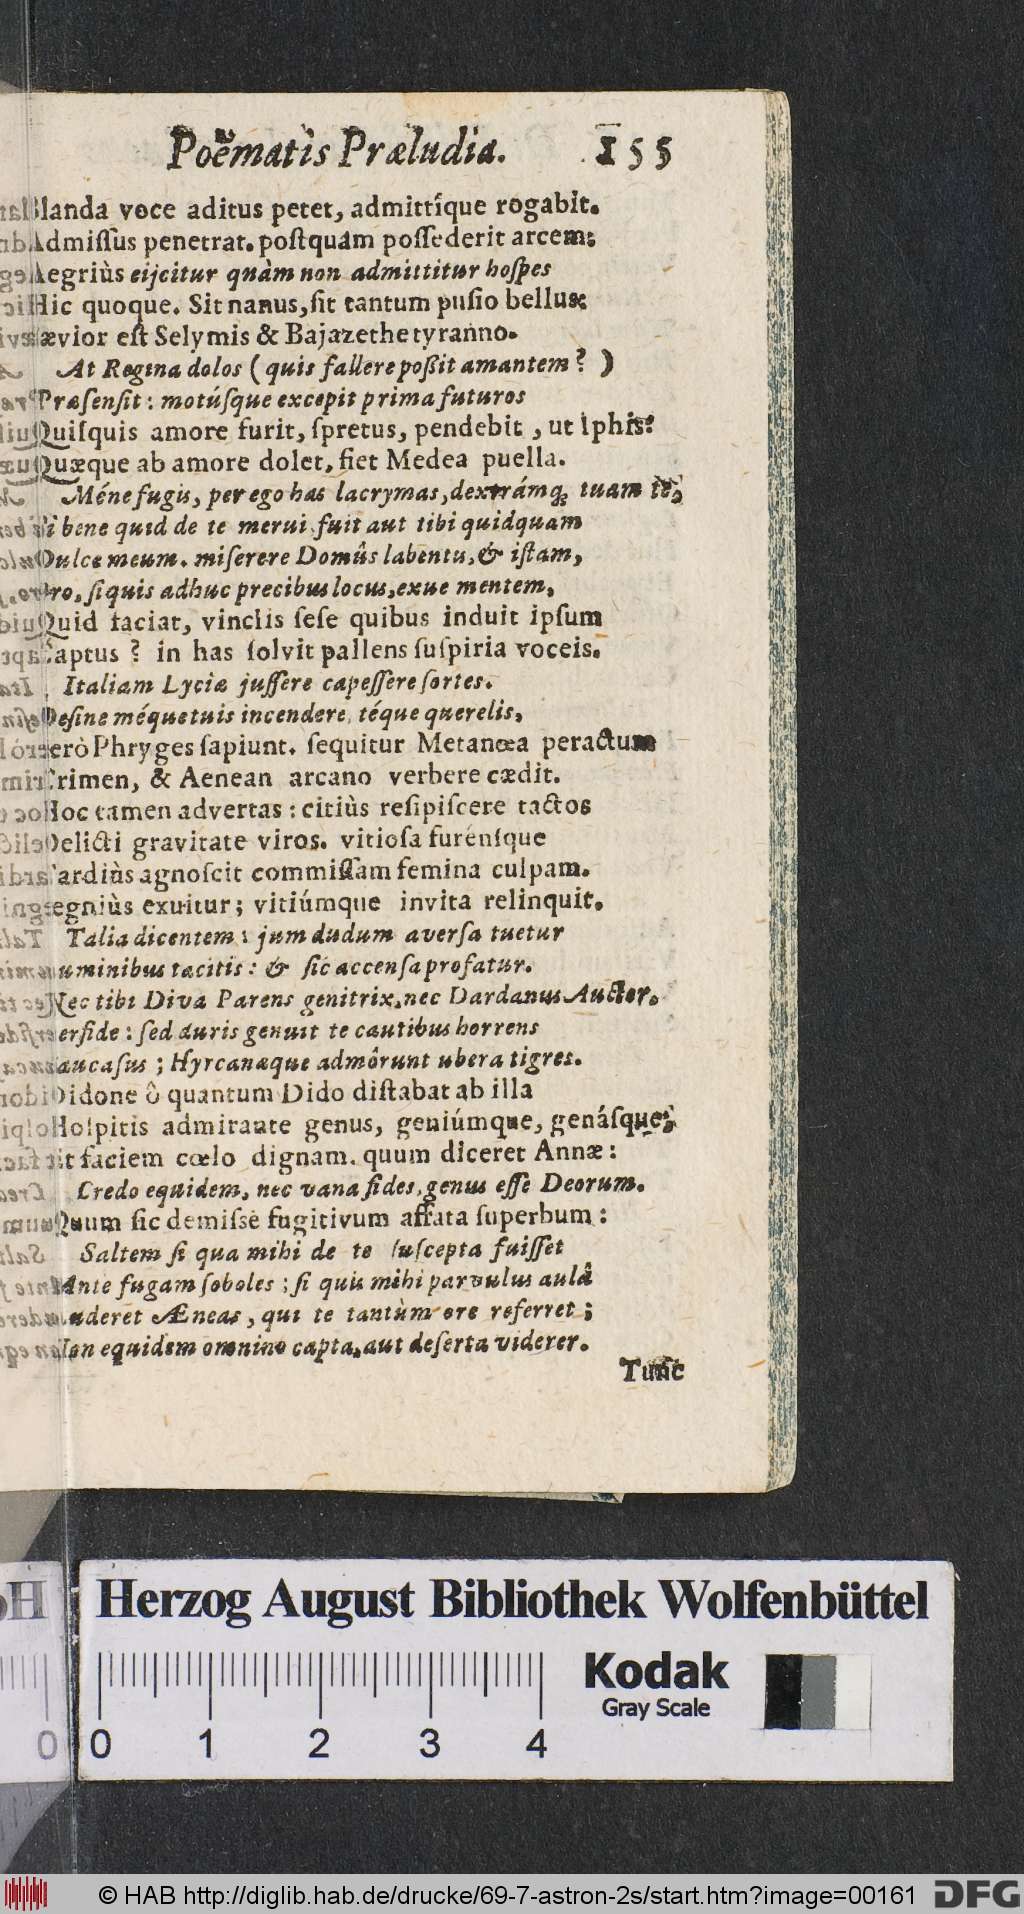 Poëmatis Præludia. 155
Blanda voce aditus petet, admittíque rogabit.
Admiſſus penetrat. poſtquàm poſſederit arcem:
Aegriùs eijcitur quàm non admittitur hoſpes
Hic quoque. Sit nanus, ſit tantum puſio bellus:
ævior eſt Selymis & Bajazethe tyranno.
At Regina dolos ( quis fallere poßit amantem? )
Præſenſit: motúſque excepit prima futuros
Quiſquis amore furit, ſpretus, pendebit, ut Iphis:
Quæque ab amore dolet, fiet Medea puella.
Méne fugis, per ego has lacrymas, dextrámq; tuam te,
Si bene quid de te merui fuit aut tibi quidquam
Dulce meum. miſerere Domûs labentis, & iſtam,
Oro, ſi quis adhuc precibus locus, exue mentem,
Quid faciat, vinclis ſeſe quibus induit ipſum
Captus? in has ſolvit pallens ſuſpiria voceis.
Italiam Lyciæ juſſere capeſſere ſortes.
Deſine méque tuis incendere, téque querelis,
erò Phryges ſapiunt. ſequitur Metanœa peractum
Crimen, & Aenean arcano verbere cædit.
Hoc tamen advertas: citiùs reſipiſcere tactos
Delicti gravitate viros. vitioſa furénſque
Tardiùs agnoſcit commiſſam femina culpam.
egniùs exuitur; vitiúmque invita relinquit.
Talia dicentem: jum dudum averſa tuetur
uminibus tacitis: & ſic accenſa profatur.
Nec tibi Diva Parens genitrix, nec Dardanus Auctor.
erfide: ſed duris genuit te cautibus horrens
aucaſus; Hyrcanæque admôrunt ubera tigres.
Didone ô quantum Dido diſtabat ab illa
Hoſpitis admirante genus, geniúmque, genáſque;
it faciem cœlo dignam. quum diceret Annæ:
Credo equidem, nec vana fides, genus eſſe Deorum.
Quum ſic demiſsè fugitivum affata ſuperbum:
Saltem ſi qua mihi de te ſuſcepta fuiſſet
Ante fugam ſoboles; ſi quis mihi parvulus aulâ
uderet Æneas, qui te tantùm ore referret;
Non equidem omnino capta, aut deſerta viderer.
Tunc
Herzog August Bibliothek Wolfenbüttel
Kodak
Gray Scale
0 0 1 2 3 4
© HAB http://diglib.hab.de/drucke/69-7-astron-2s/start.htm?image=00161 DFG